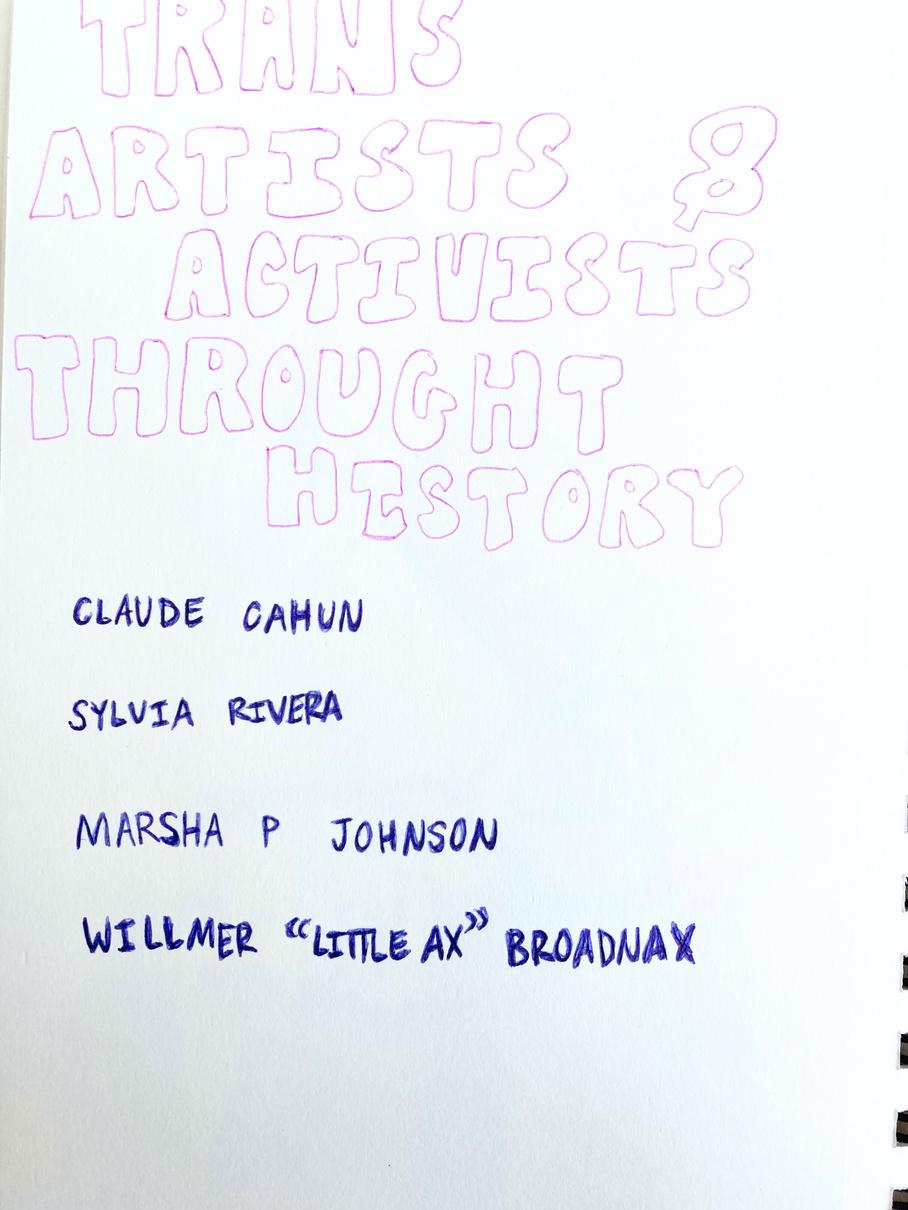 TRANS
ARTISTS &
ACTIVISTS
THROUGHT
HISTORY
CLAUDE CAHUN
SYLVIA RIVERA
MARSHA P JOHNSON
WILLMER “LITTLE AX” BROADNAX